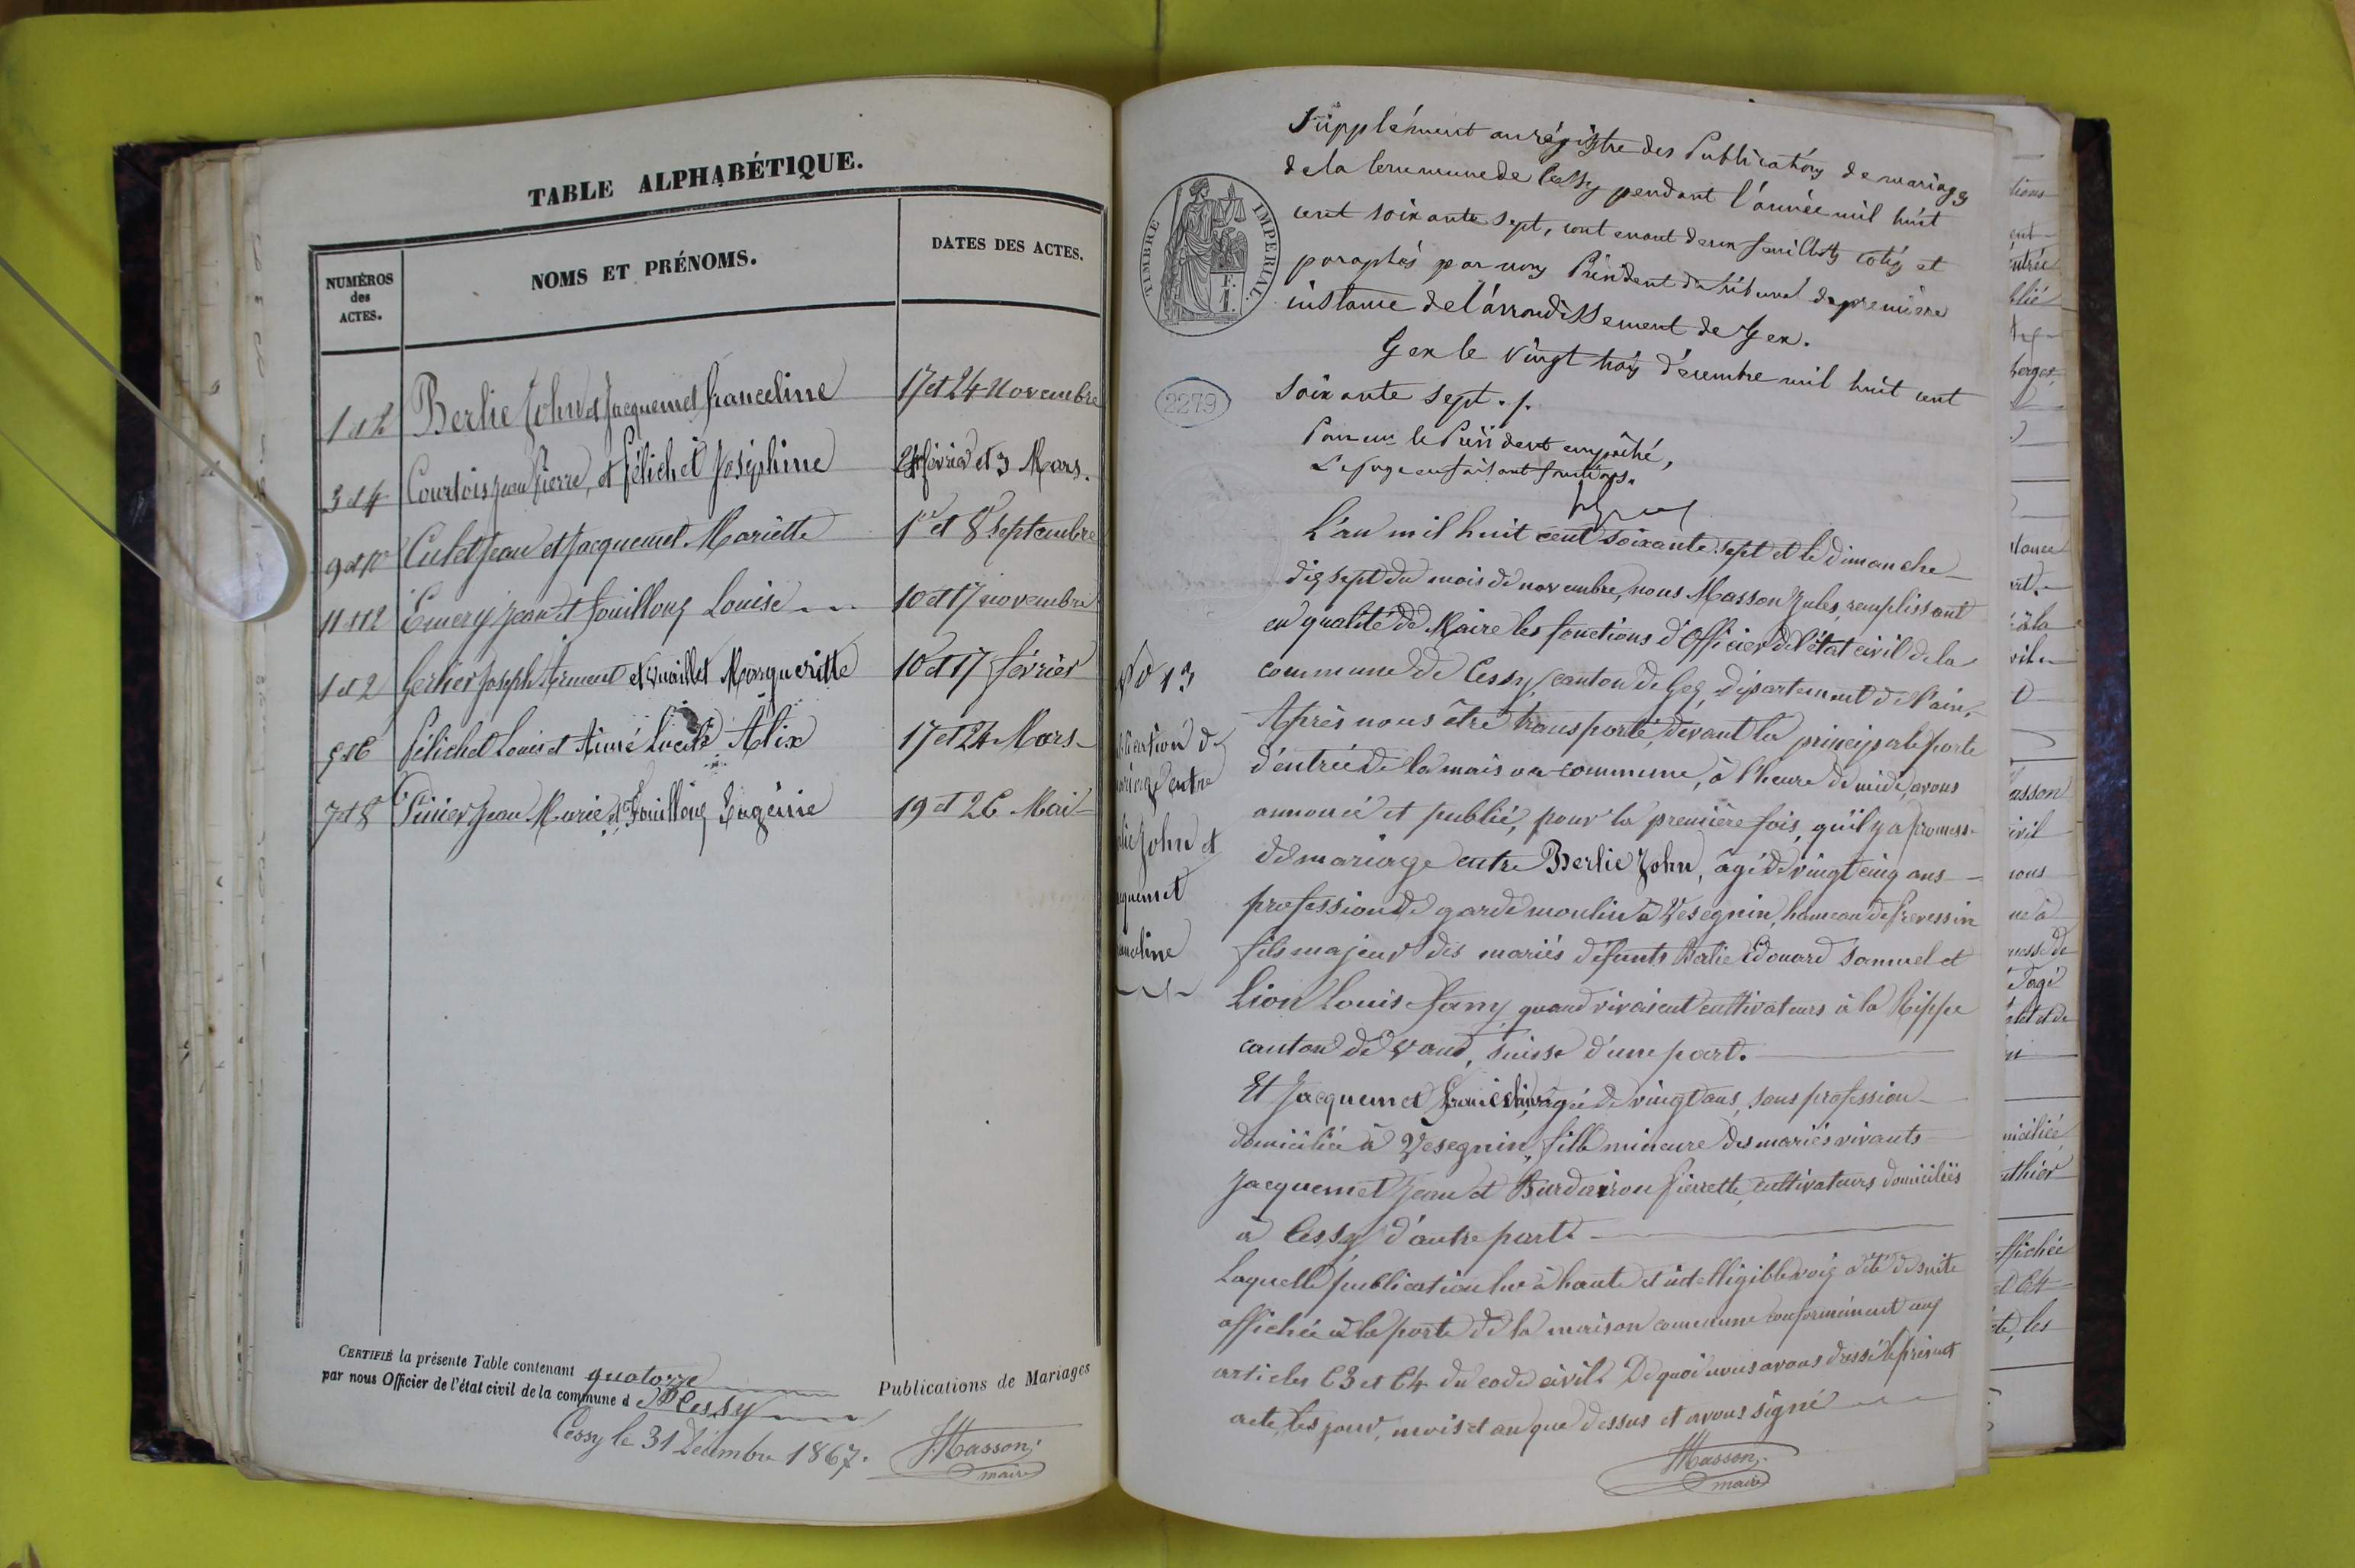 TABLE ALPHABÉTIQUE.
NUMÉROS des ACTES.
NOMS ET PRÉNOMS.
DATES DES ACTES.
1 et 2 Berlie John et Jacquemet franceline 17 et 24 Novembre
3 et 4 Courtois jean Pierre, et Félichet Joséphine 24 février et 3 Mars.
9 et 10 Culet Jean et Jacquemet Mariette 1er et 8 Septembre
11 et 12 Emery Jean et fouilloux Louise 10 et 17 novembre
1 et 2 Gerlier Joseph et Vuaillet Margueritte 10 et 17 février
5 et 6 félichet Louis et Aimé Lucile Alix 17 et 24 Mars
7 et 8 Pinier Jean Marie et Fouilloux Eugénie 19 et 26 Mai
CERTIFIÉ la présente Table contenant quatorze Publications de Mariages
par nous Officier de l'état civil de la commune d e Cessy
Cessy le 31 Décembre 1867.
JMasson
maire
Supplément au régistre des Publications de mariages
de la Commune de Cessy pendant l'année mil huit
cent soixante sept, contenant deux feuillets cotés et
paraphés par nous Président du tribunal de première
instance de l'arrondissement de Gex.
Gex le vingt trois décembre mil huit cent
soixante sept. /.
Pour mr le Président empêché,
Le juge en faisant fonctions.
TIMBRE IMPERIAL.
F.
1.
2279
L'an mil huit cent soixante sept et le dimanche
dix sept du mois de novembre, nous Masson Jules, remplissant
en qualité de Maire les fonctions d'Officier de l'état civil de la
commune de Cessy, canton de Gex, département de l'ain,
Après nous être transporté, devant la principale porte
d'entrée de la maison commune, à l'heure de midi, avons
annoncé et publié, pour la première fois, qu'il y a promess.
de mariage entre Berlie John, âgé de vingt cinq ans
profession de garde moulin à Vesegnin, hameau de Prevessin
fils majeur des mariés défunts Berlie Edouard Samuel et
Lion Louis Fany quand vivaient cultivateurs à la Rippe
canton de Vaud, Suisse d'une part.
Et Jacquemet Franceline, âgée de vingt ans, sans profession
domiciliée à Vesegnin, fille mineure des mariés vivants
Jacquemet Jean et Burdairon Pierrette, cultivateurs domiciliés
à Cessy d'autre part.
Laquelle publication lue à haute et intelligible voix a été de suite
affichée à la porte de la maison commune conformément aux
articles 63 et 64 du code civil. De quoi nous avons dressé le présent
acte, les jour, mois et an que dessus et avons signé
JMasson
maire
No 13
blication de
ariage entre
lie John et
quemet
anceline